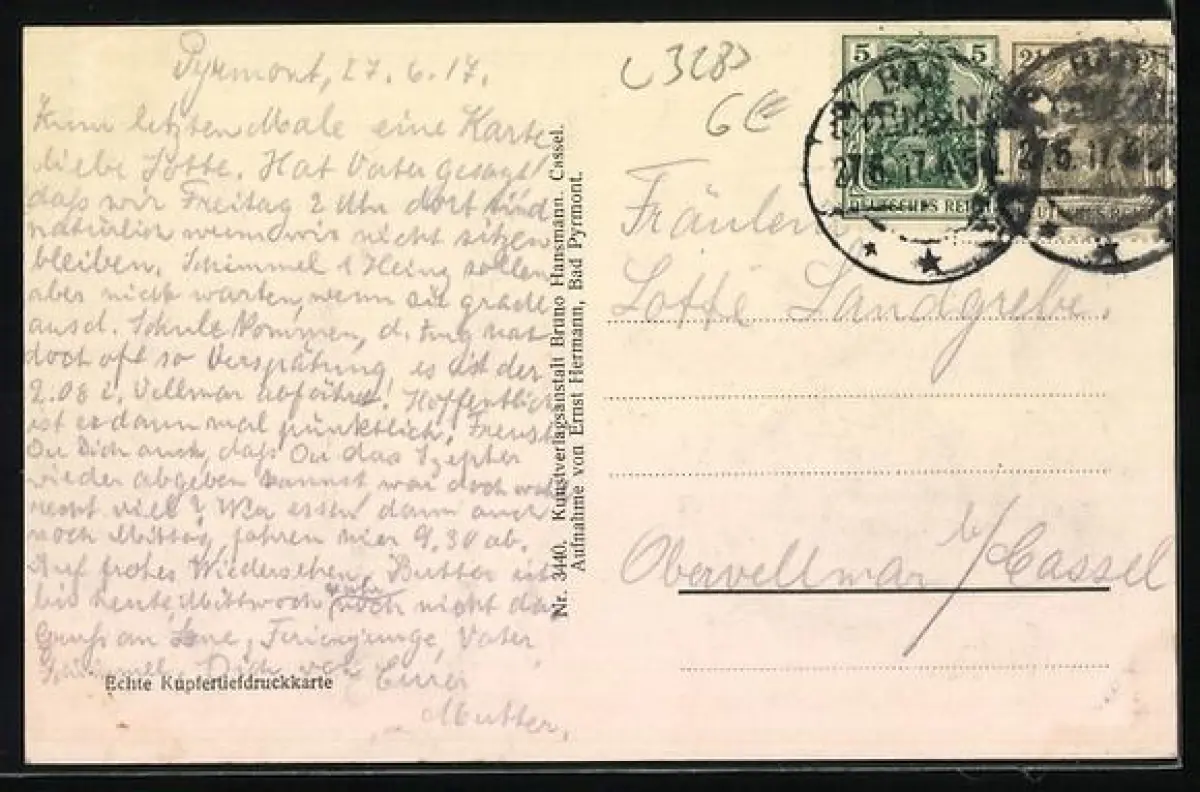 Pyrmont, 27.6.17.
Zum letzten Male eine Karte
liebe Lotte. Hat Vater gesagt
daß wir Freitag 2 Uhr dort sind
natürlich wenn wir nicht sitzen
bleiben. Schimmel & Heinz sollen
aber nicht warten, wenn sie grade
aus d. Schule kommen, d. Zug hat
doch oft so Verspätung, es ist der
2.08 i. Vellmar abfährt! Hoffentlich
ist er dann mal pünktlich. Freust
Du Dich auch, daß Du das Szepter
wieder abgeben kannst war doch wohl
recht viel? Wir essen dann auch
noch Mittag, fahren hier 9.30 ab.
Auf frohes Wiedersehen, Butter ist
bis heute, Mittwoch noch nicht da
Gruß an Lene, Ferienjunge, Vater
Schimmel Dich von Eurer
Mutter.
Echte Kupfertiefdruckkarte
Nr. 3440. Kunstverlagsanstalt Bruno Hansmann, Cassel.
Aufnahme von Ernst Hermann, Bad Pyrmont.
3283
6€
5 5
DEUTSCHES REICH
BAD
27.6.17.
Fräulein
Lotte Landgrebe.
Obervellmar b/Cassel